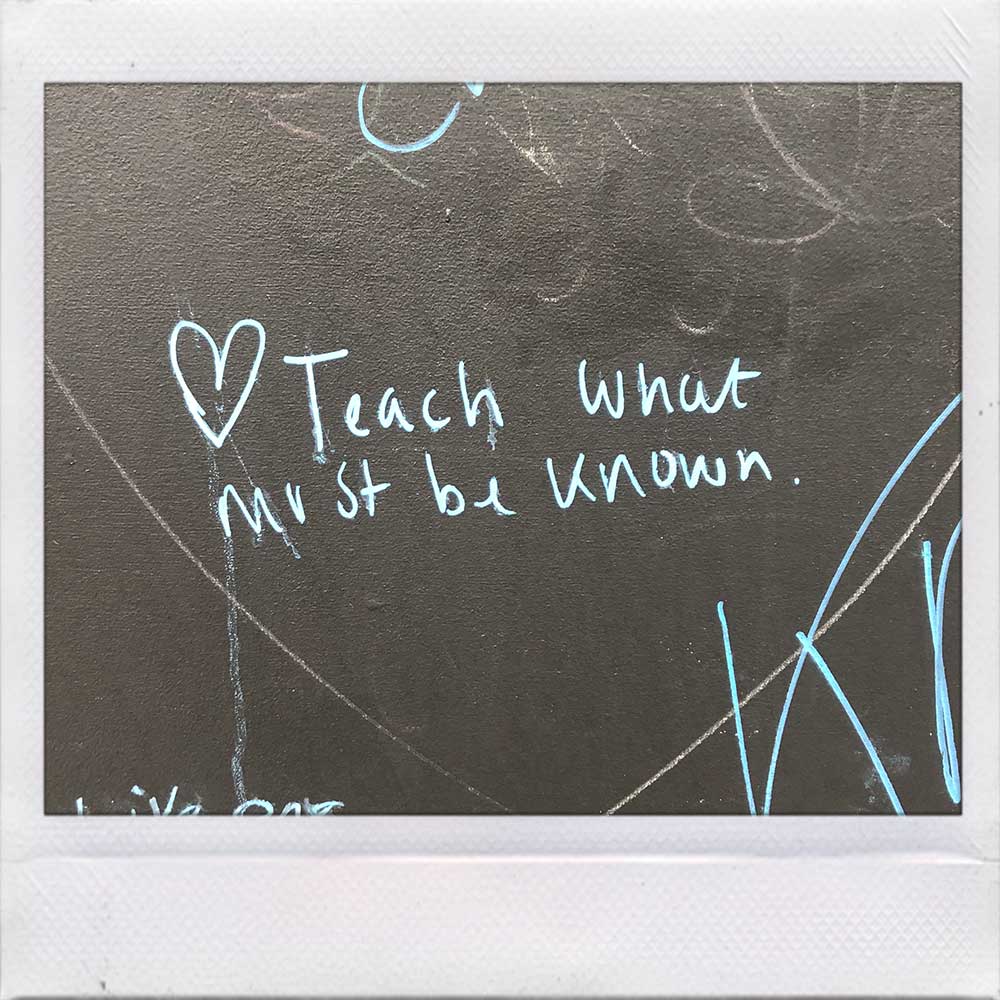 Teach what
must be known.